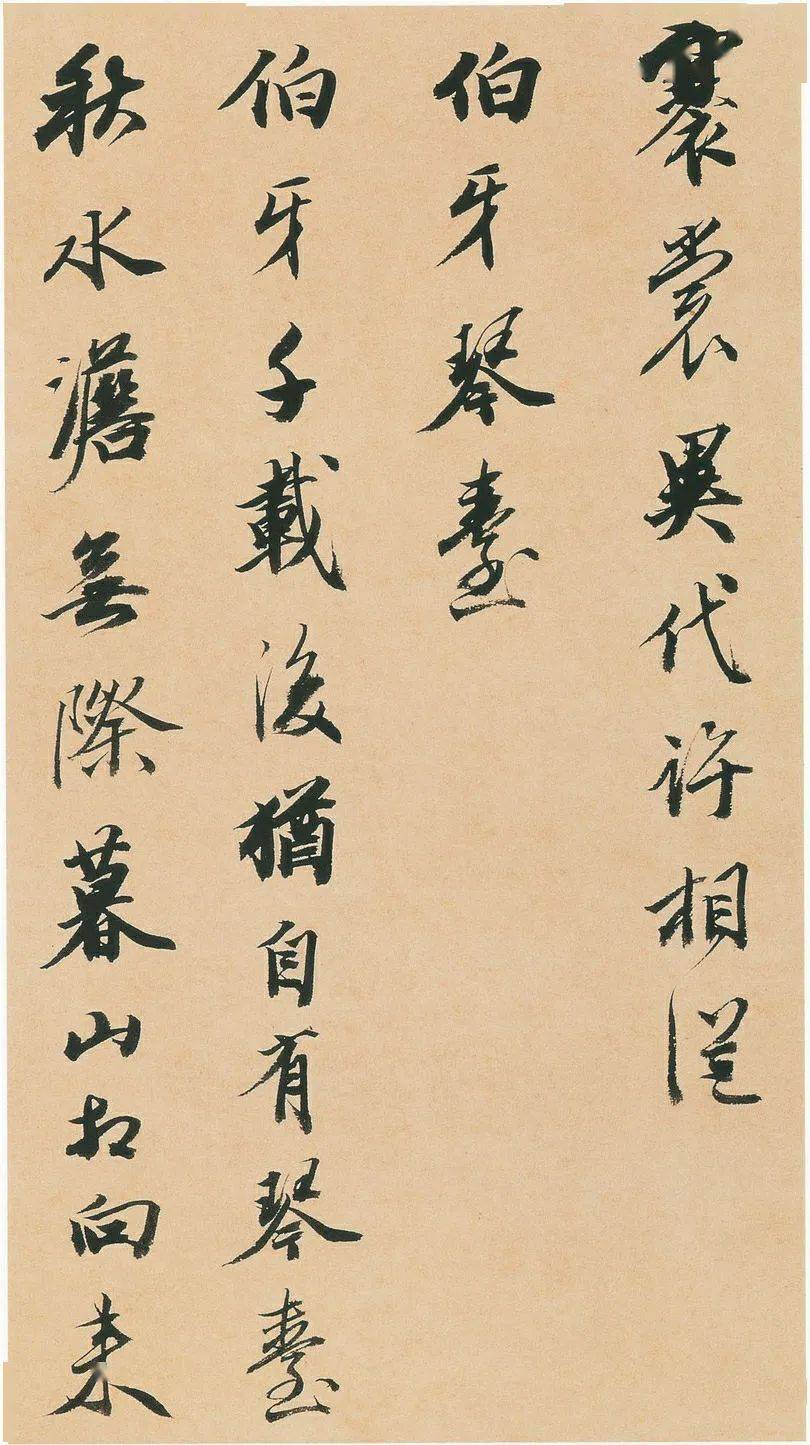 褰裳異代許相從
伯牙琴臺
伯牙千載後猶自有琴臺
秋水澹無際暮山相向來